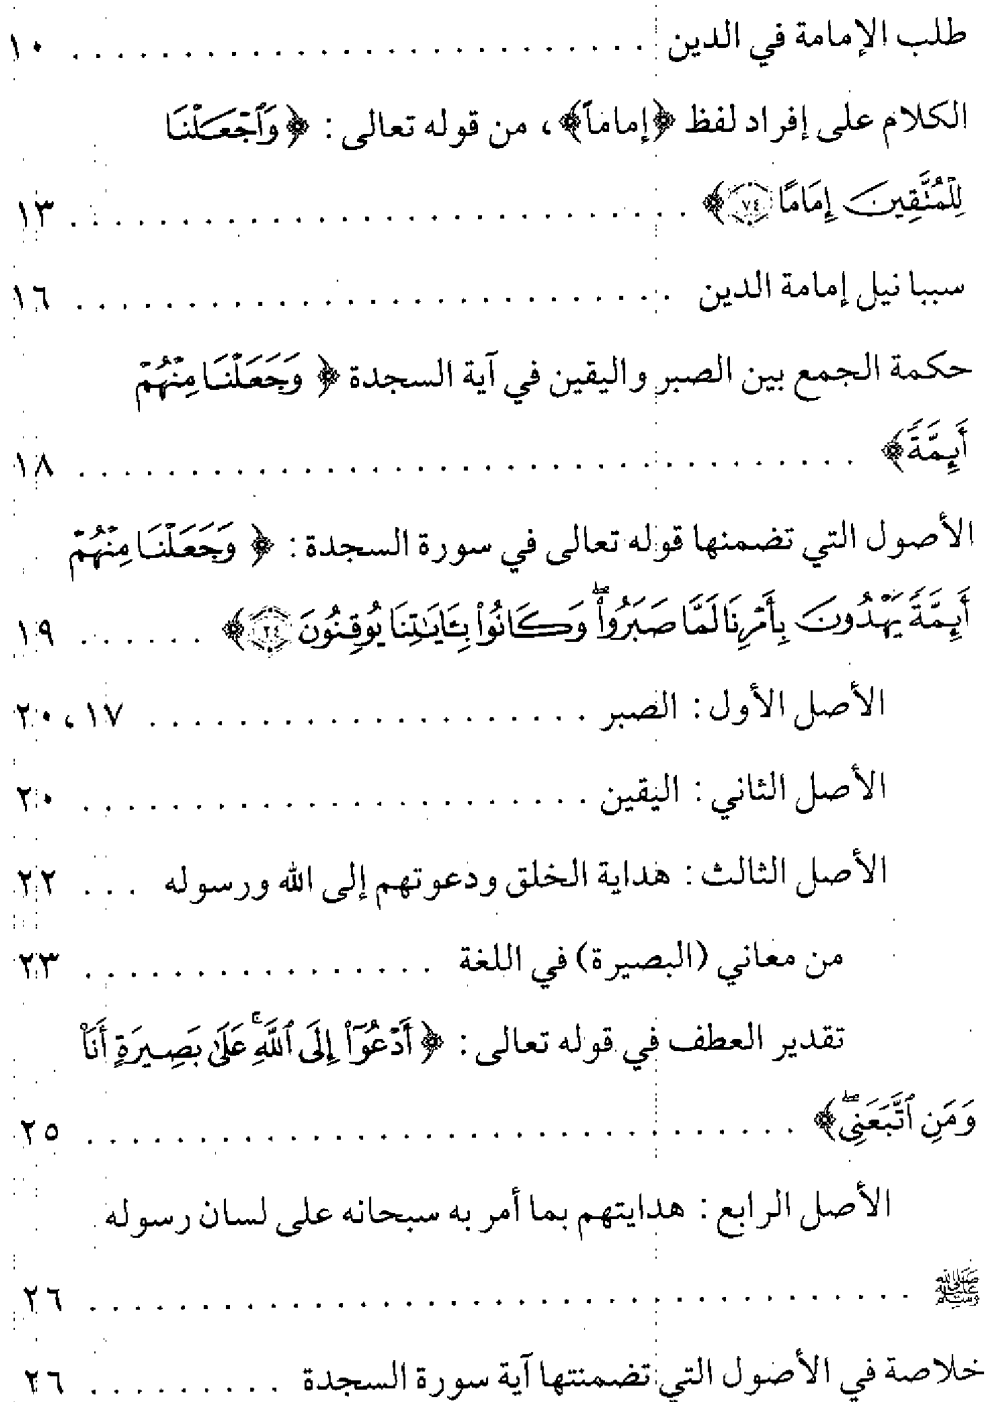 طلب الإمامة في الدين . . . . . . . . . . . . . . . . . . . . . . . . . ١٠
الكلام على إفراد لفظ ﴿إماماً﴾، من قوله تعالى: ﴿وَٱجۡعَلۡنَا
لِلۡمُتَّقِينَ إِمَامًا ٧٤﴾ . . . . . . . . . . . . . . . . . . . . . . . . . . . . ١٣
سببا نيل إمامة الدين . . . . . . . . . . . . . . . . . . . . . . . . . . . ١٦
حكمة الجمع بين الصبر واليقين في آية السجدة ﴿وَجَعَلۡنَا مِنۡهُمۡ
أَئِمَّةٗ﴾ . . . . . . . . . . . . . . . . . . . . . . . . . . . . . . . . . . . ١٨
الأصول التي تضمنها قوله تعالى في سورة السجدة: ﴿وَجَعَلۡنَا مِنۡهُمۡ
أَئِمَّةٗ يَهۡدُونَ بِأَمۡرِنَا لَمَّا صَبَرُواْۖ وَكَانُواْ بِـَٔايَٰتِنَا يُوقِنُونَ ٢٤﴾ . . . . . . . ١٩
الأصل الأول: الصبر . . . . . . . . . . . . . . . . . . . . ١٧، ٢٠
الأصل الثاني: اليقين . . . . . . . . . . . . . . . . . . . . . . . ٢٠
الأصل الثالث: هداية الخلق ودعوتهم إلى الله ورسوله . . . ٢٢
من معاني (البصيرة) في اللغة . . . . . . . . . . . . . . . . ٢٣
تقدير العطف في قوله تعالى: ﴿أَدۡعُوٓاْ إِلَى ٱللَّهِۚ عَلَىٰ بَصِيرَةٍ أَنَا۠
وَمَنِ ٱتَّبَعَنِيۖ﴾ . . . . . . . . . . . . . . . . . . . . . . . . . . . . . . . ٢٥
الأصل الرابع: هدايتهم بما أمر به سبحانه على لسان رسوله
ﷺ . . . . . . . . . . . . . . . . . . . . . . . . . . . . . . . . . . . . ٢٦
خلاصة في الأصول التي تضمنتها آية سورة السجدة . . . . . . . . . ٢٦